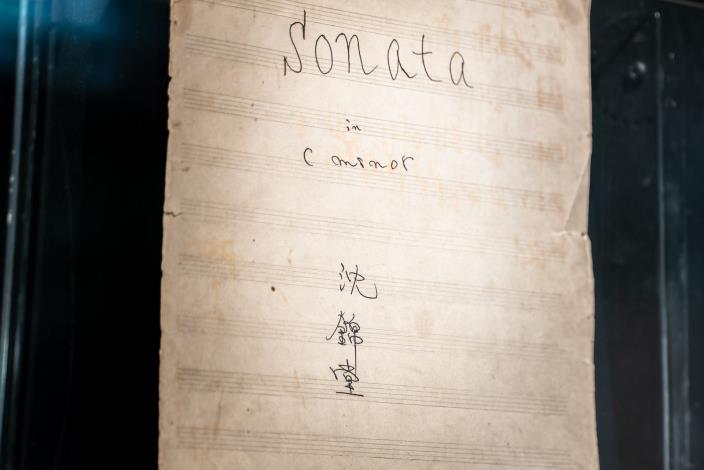 Sonata
in
C minor
沈錦堂